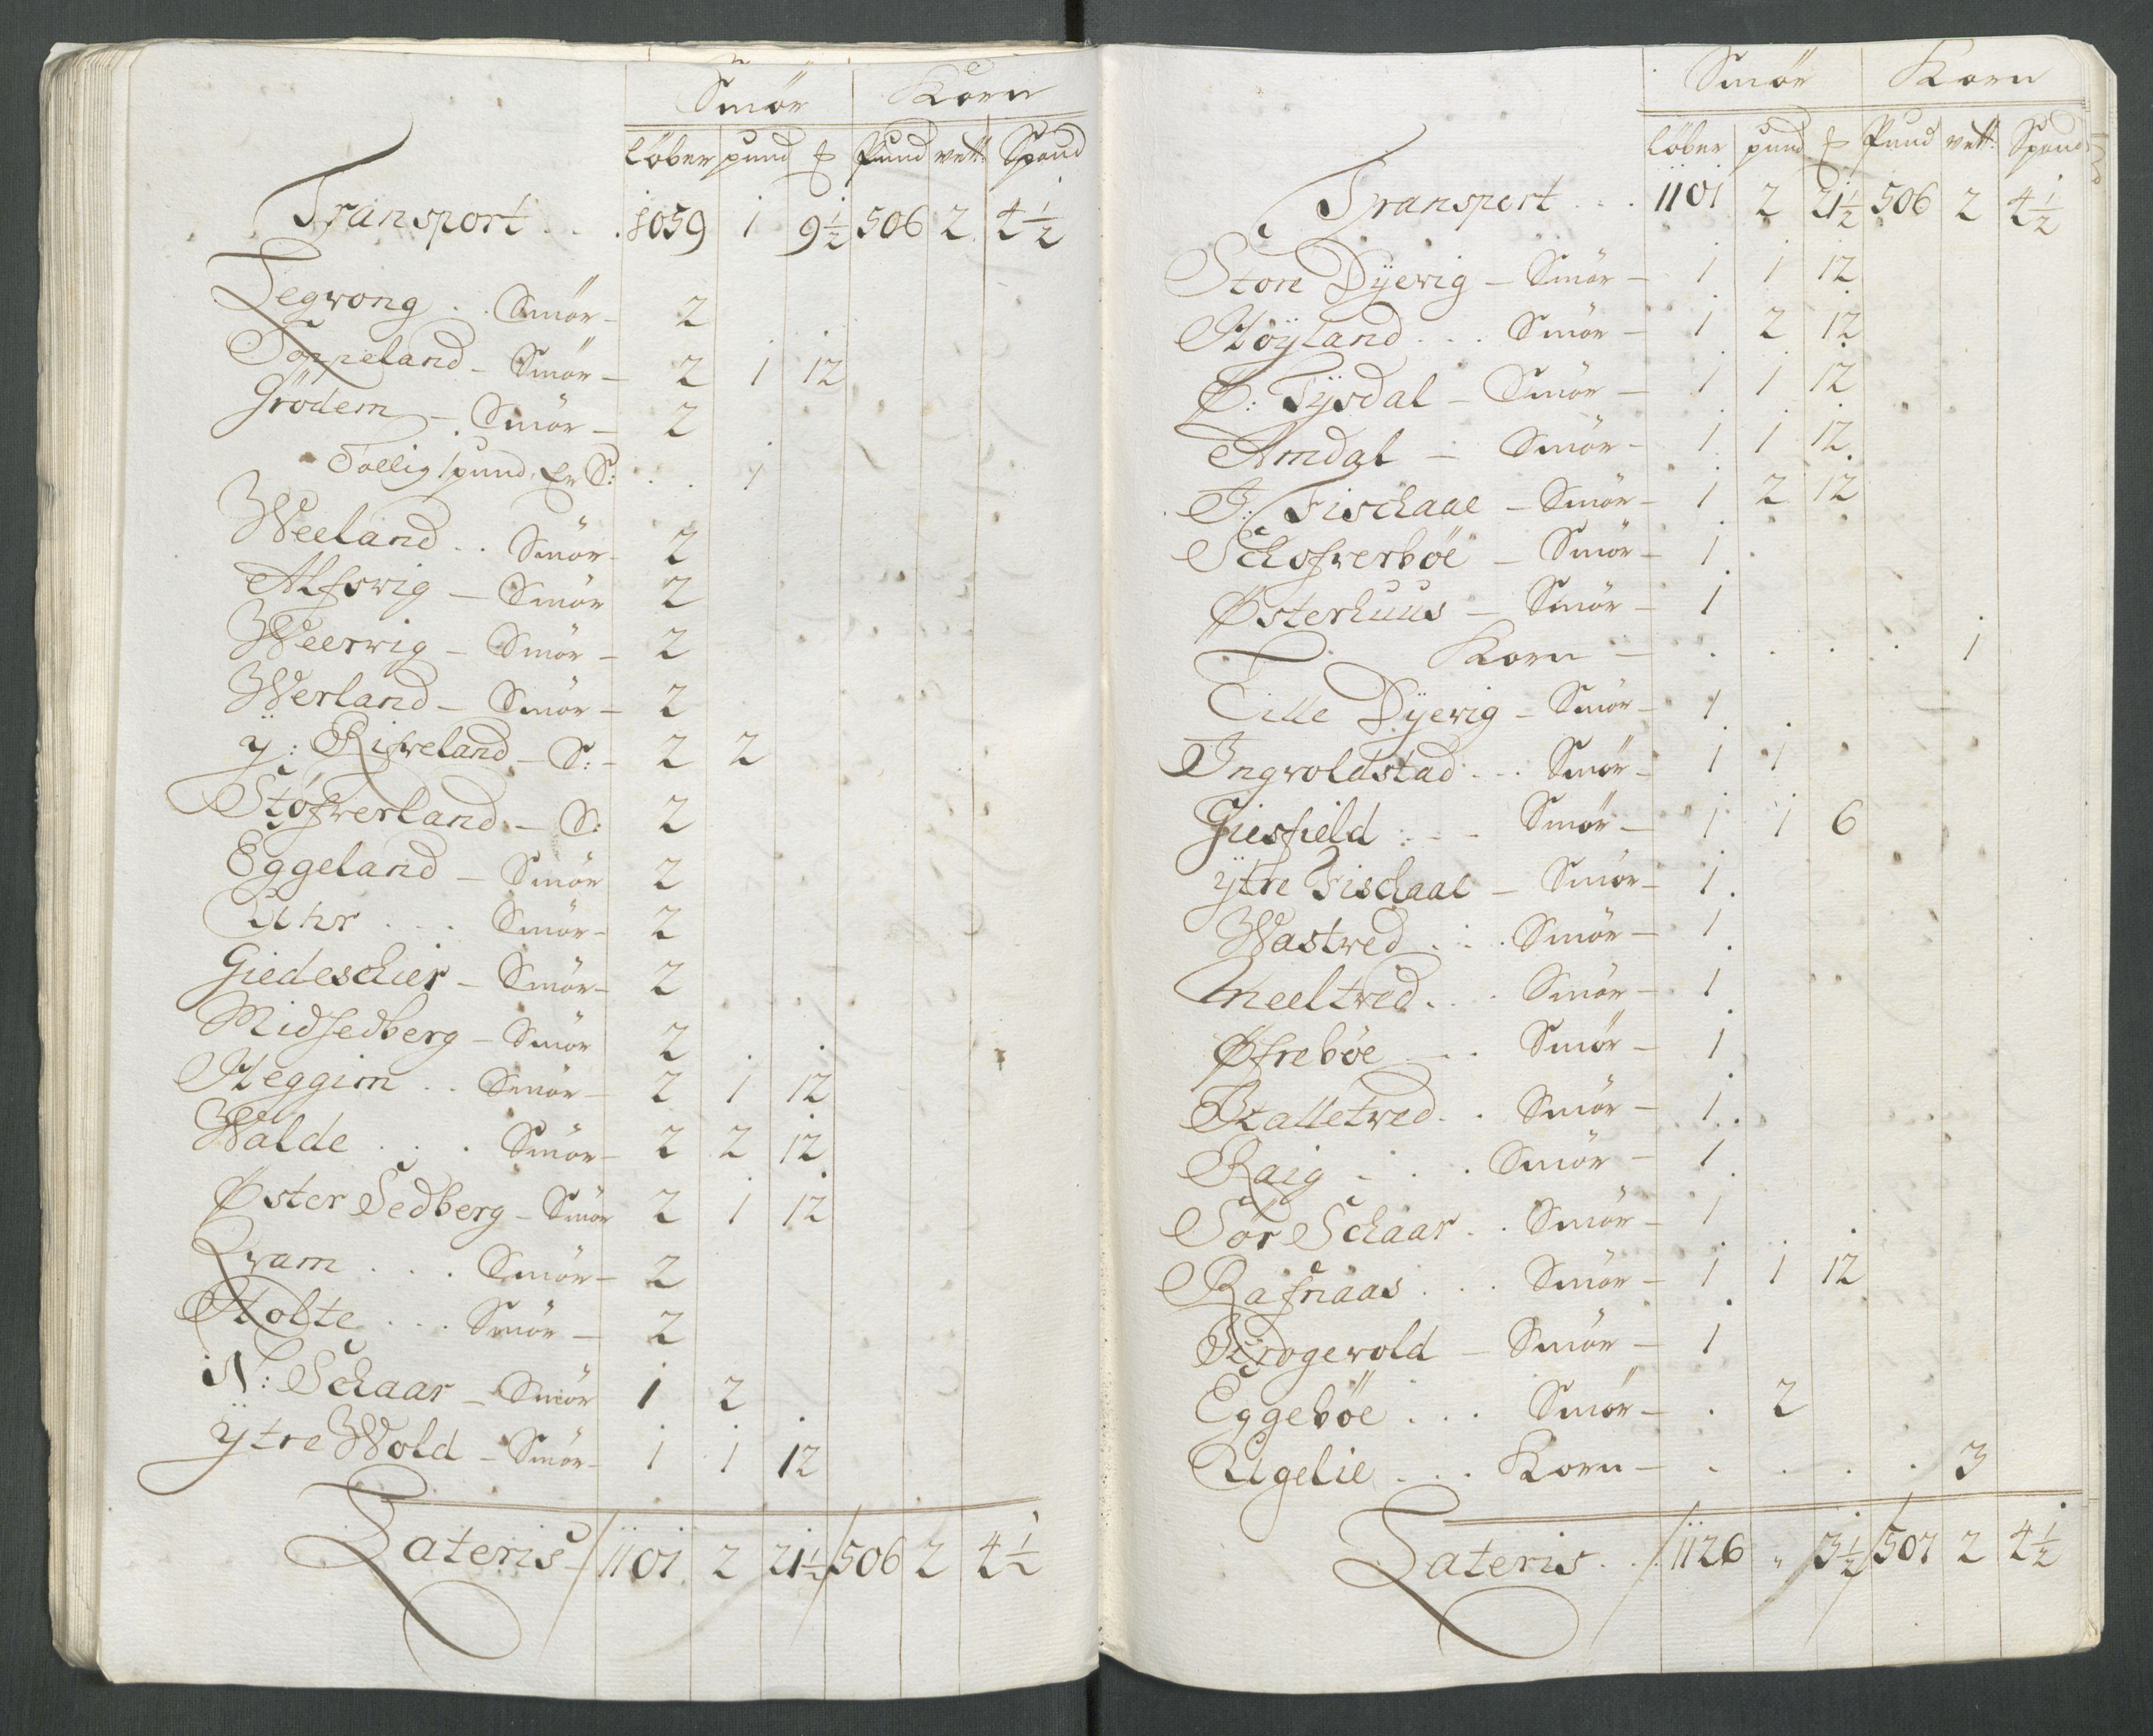 Smör Korn
löber pund ℔ Pund vett: Spand
Transport . . . 1059 1 9½ 506 2 4½
Tegvong . . Smör - 2
Toppeland - Smör - 2 1 12
Grödem - Smör - 2
Tollig 1 pund er S: . . 1
Weeland . . Smör - 2
Alfsvig - Smör 2
Weervig - Smör - 2
Werland - Smör - 2
ÿ: Rifveland - S: - 2 2
Stöfverland - S: 2
Eggeland - Smör 2
Uhr . . . Smör - 2
Giedeschier - Smör - 2
Midsedberg - Smör 2
Heggim . . Smör - 2 1 12
Walde . . . Smör - 2 2 12
Øster Sedberg - Smör 2 1 12
Qvam . . . Smör - 2
Holte . . . Smör - 2
N: Schaar - Smör 1 2
ÿtre Wold - Smör - 1 1 12
Lateris - 1101 2 21½ 506 2 4½
Smör Korn
löber pund ℔ Pund vett: Spand
Transport . . . 1101 2 21½ 506 2 4½
Store Dÿevig - Smör - 1 1 12
Höÿland . . . Smör - 1 2 12
Ø: Tÿsdal - Smör - 1 1 12
Amdal - Smör - 1 1 12
I: Fischaae - Smör - 1 2 12
Schofverböe - Smör - 1
Østerhuus - Smör - 1
Korn - . . . . 1
Lille Dÿevig - Smör - 1
Ingvoldstad . . . Smör - 1 1
Giesfield . - - Smör - 1 1 6
ÿtre Fischaae - Smör - 1
Wastved . . . Smör - 1
Meeltved . . . Smör - 1
Øfreböe - . . Smör - 1
Halletved . . Smör - 1
Raig - . . . Smör - 1
Sör Schaar . . Smör - 1
Rafnaas . . . Smör - 1 1 12
Schrogevold - Smör - 1
Eggeböe . . . Smör - . 2
Ugelie . . . Korn - . . . . 3
Lateris . . 1126 „ 3½ 507 2 4½